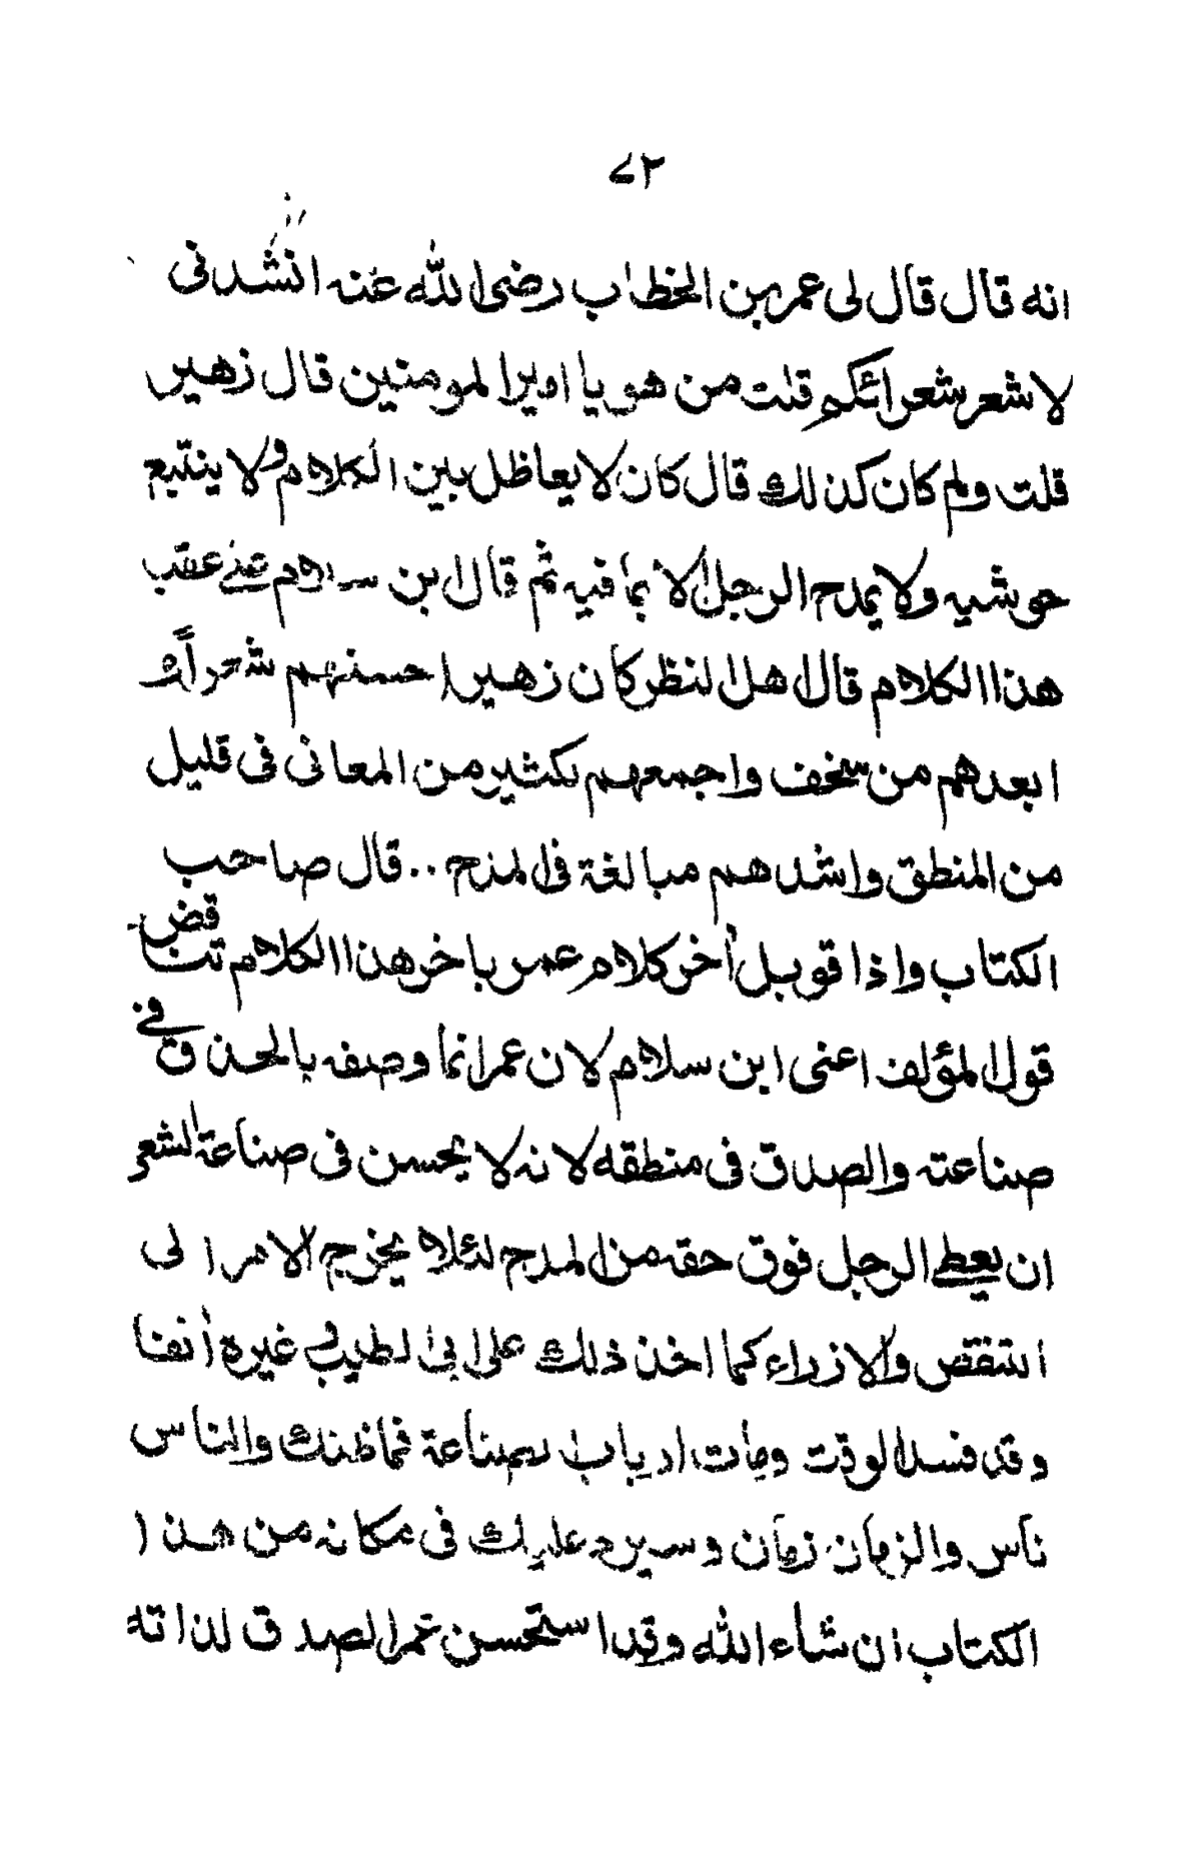 ٧٢
انه قال قال لى عمر بن الخطاب رضى الله عنه انشدنى
لا شعر شعرائكم قلت من هو يا امير المومنين قال زهير
قلت ولم كان كذلك قال كان لا يعاظل بين الكلام ولا يتتبع
حوشيه ولا يمدح الرجل الا بما فيه ثم قال ابن سلام عقب
هذا الكلام قال اهل النظر كان زهير احسنهم شعراً و
ابعدهم من سخف واجمعهم لكثير من المعانى فى قليل
من المنطق واشدهم مبالغة فى المدح ٠٠ قال صاحب
الكتاب واذا قوبل أخر كلام عمر باخر هذا الكلام تناقض
قول المؤلف اعنى ابن سلام لان عمر انما وصفه بالحذق فى
صناعته والصدق فى منطقه لانه لا يحسن فى صناعة الشعر
ان يعطى الرجل فوق حقه من المدح لئلا يخرج الامر الى
التنقص والازراء كما اخذ ذلك على ابى الطيب وغيره أنفا
وقد فسد الوقت ومات ارباب الصناعة فما ظنك والناس
ناس والزمان زمان وسيرد عليك فى مكانه من هذا
الكتاب ان شاء الله وقد استحسن عمر الصدق لذاته